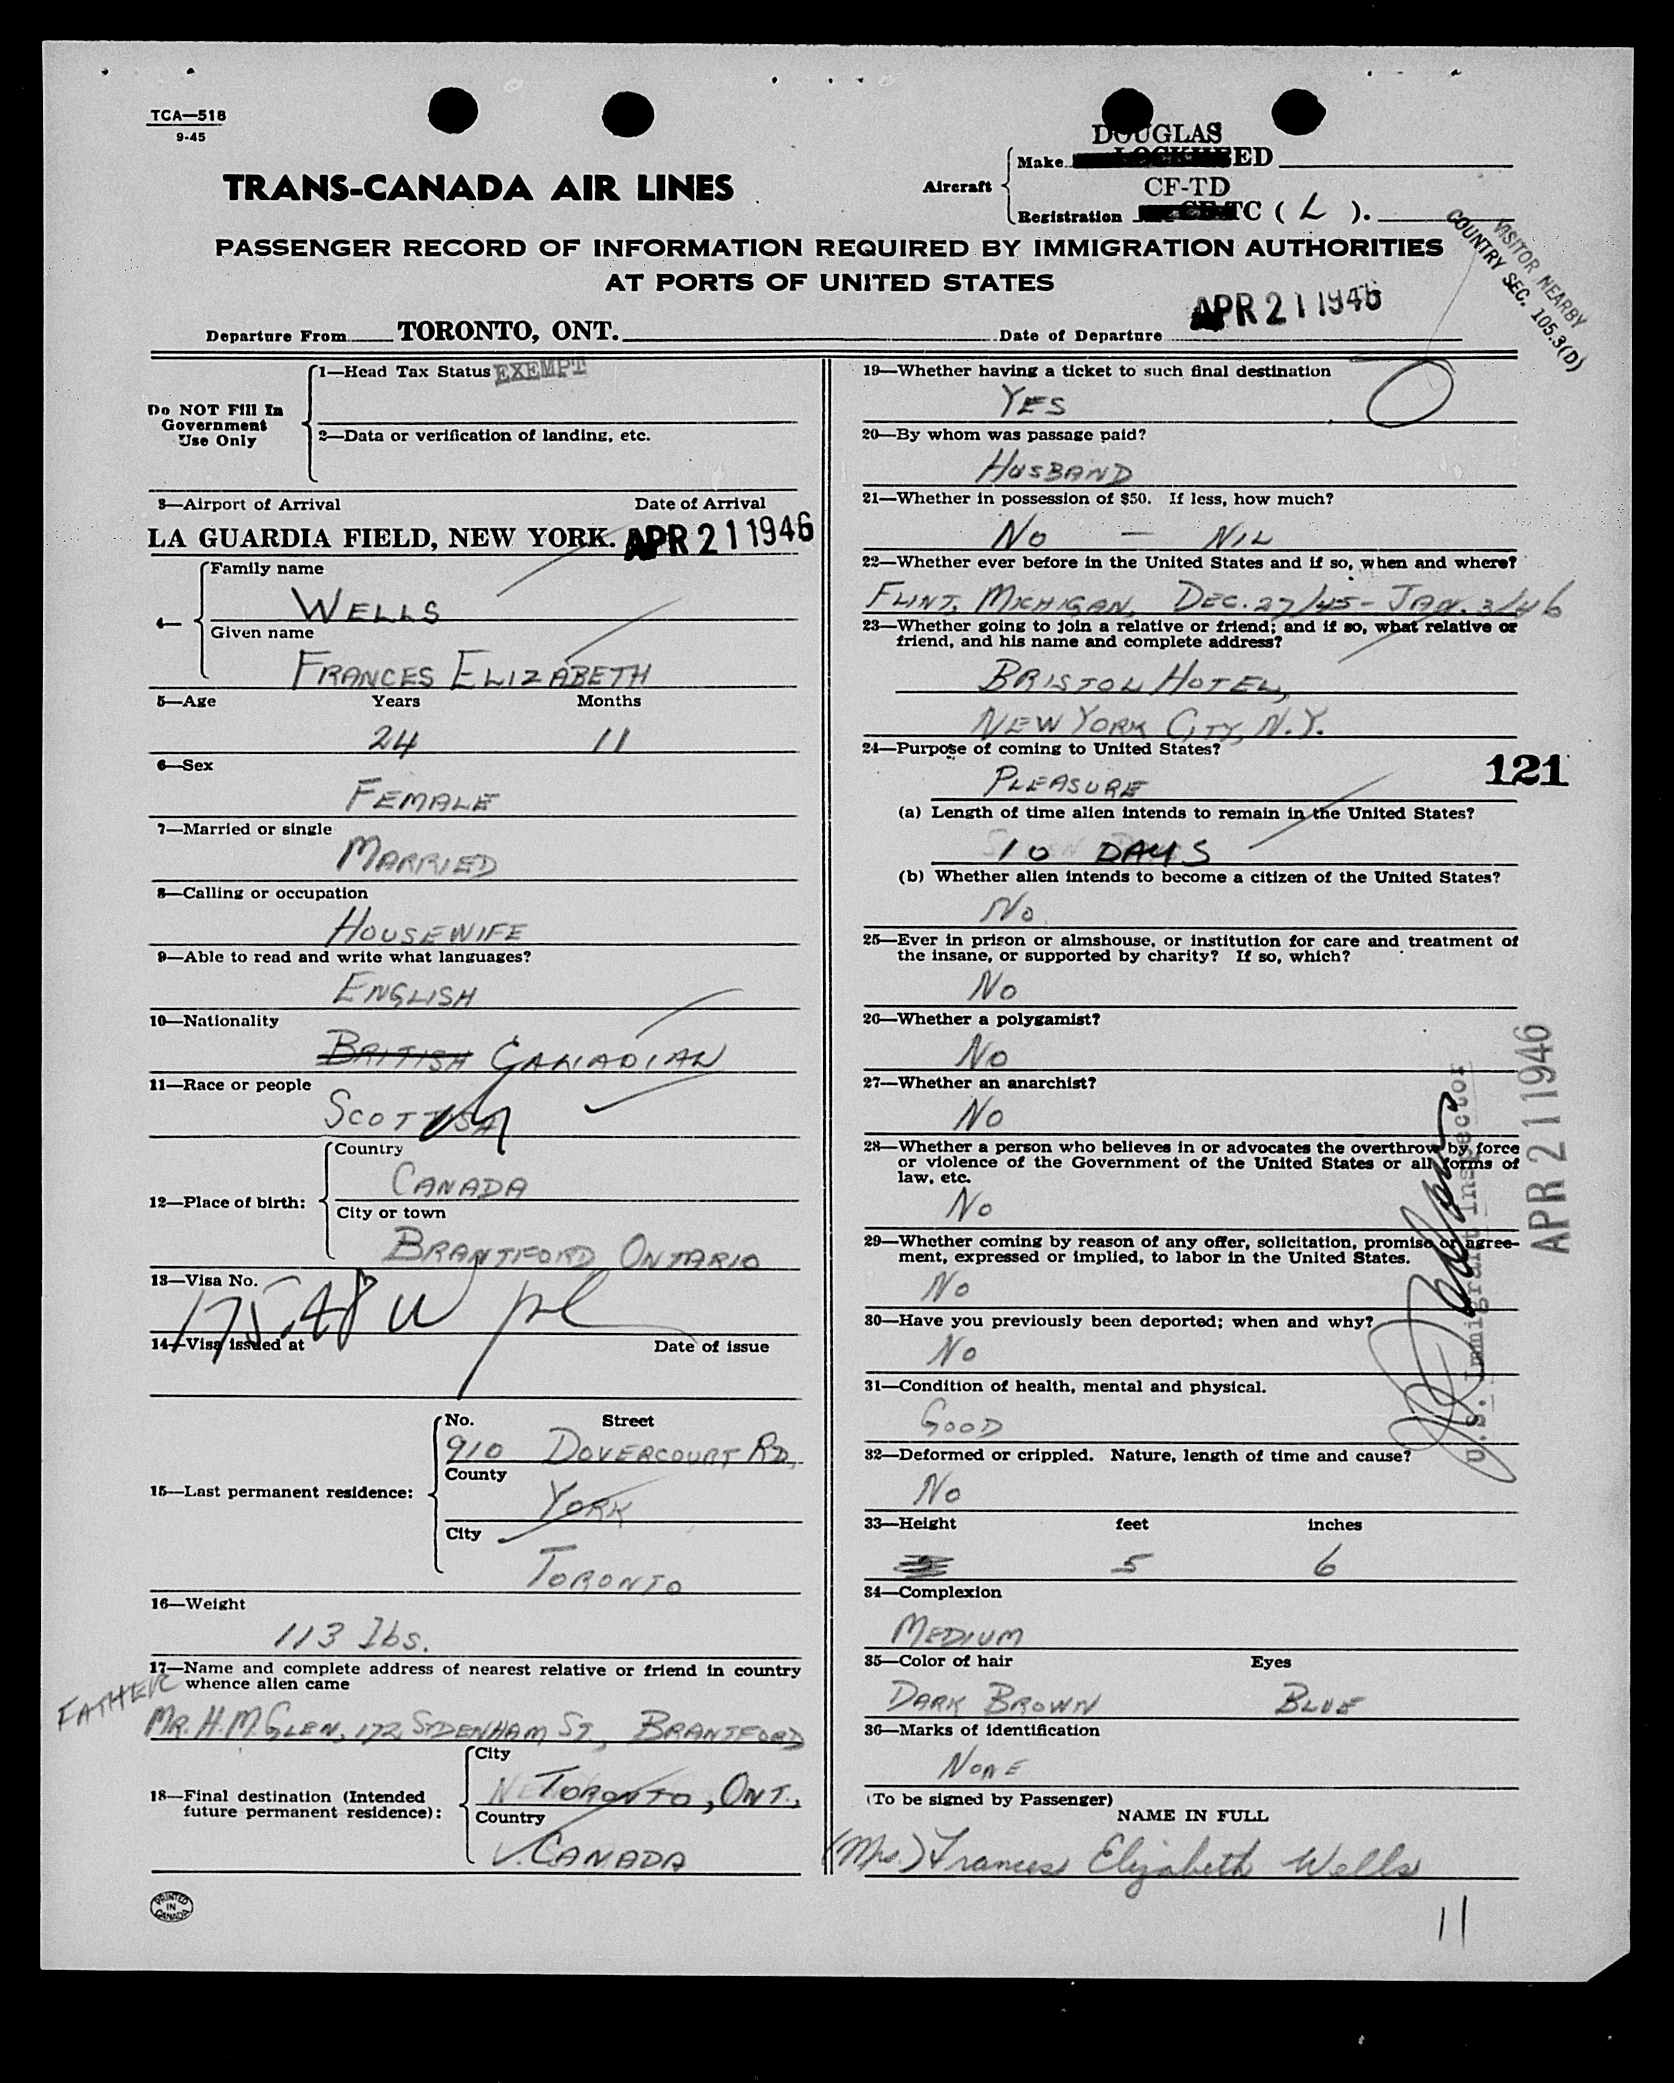 TCA—518
9-45
TRANS-CANADA AIR LINES
DOUGLAS
Aircraft
Make ED
CF-TD
Registration TC ( L ).
PASSENGER RECORD OF INFORMATION REQUIRED BY IMMIGRATION AUTHORITIES
AT PORTS OF UNITED STATES
VISITOR NEARBY
COUNTRY SEC. 105.3(D)
Departure From TORONTO, ONT. Date of Departure APR 21 1946
Do NOT Fill In
Government
Use Only
1—Head Tax Status EXEMPT
2—Data or verification of landing, etc.
3—Airport of Arrival Date of Arrival
LA GUARDIA FIELD, NEW YORK. APR 21 1946
4—
Family name
WELLS
Given name
FRANCES ELIZABETH
5—Age Years Months
24 11
6—Sex
FEMALE
7—Married or single
MARRIED
8—Calling or occupation
HOUSEWIFE
9—Able to read and write what languages?
ENGLISH
10—Nationality
BRITISH CANADIAN
11—Race or people
SCOTTISH
12—Place of birth:
Country
CANADA
City or town
BRANTFORD ONTARIO
13—Visa No.
14—Visa issued at Date of issue
15—Last permanent residence:
No. Street
910 DOVERCOURT RD.
County
YORK
City
TORONTO
16—Weight
113 lbs.
17—Name and complete address of nearest relative or friend in country
whence alien came
FATHER
MR. H. M. GLEN, 172 SYDENHAM ST., BRANTFORD
18—Final destination (Intended
future permanent residence):
City
TORONTO, ONT.,
Country
CANADA
PRINTED
IN
CANADA
19—Whether having a ticket to such final destination
YES
20—By whom was passage paid?
HUSBAND
21—Whether in possession of $50. If less, how much?
NO — NIL
22—Whether ever before in the United States and if so, when and where?
FLINT, MICHIGAN, DEC. 27/45 - JAN. 3/46
23—Whether going to join a relative or friend; and if so, what relative or
friend, and his name and complete address?
BRISTOL HOTEL,
NEW YORK CITY, N.Y.
24—Purpose of coming to United States?
PLEASURE
121
(a) Length of time alien intends to remain in the United States?
10 DAYS
(b) Whether alien intends to become a citizen of the United States?
NO
25—Ever in prison or almshouse, or institution for care and treatment of
the insane, or supported by charity? If so, which?
NO
26—Whether a polygamist?
NO
27—Whether an anarchist?
NO
28—Whether a person who believes in or advocates the overthrow by force
or violence of the Government of the United States or all forms of
law, etc.
NO
29—Whether coming by reason of any offer, solicitation, promise or agree-
ment, expressed or implied, to labor in the United States.
NO
30—Have you previously been deported; when and why?
NO
31—Condition of health, mental and physical.
GOOD
32—Deformed or crippled. Nature, length of time and cause?
NO
U.S. Immigrant Inspector
APR 21 1946
33—Height feet inches
5 6
34—Complexion
MEDIUM
35—Color of hair Eyes
DARK BROWN BLUE
36—Marks of identification
NONE
(To be signed by Passenger)
NAME IN FULL
(Mrs.) Frances Elizabeth Wells
11